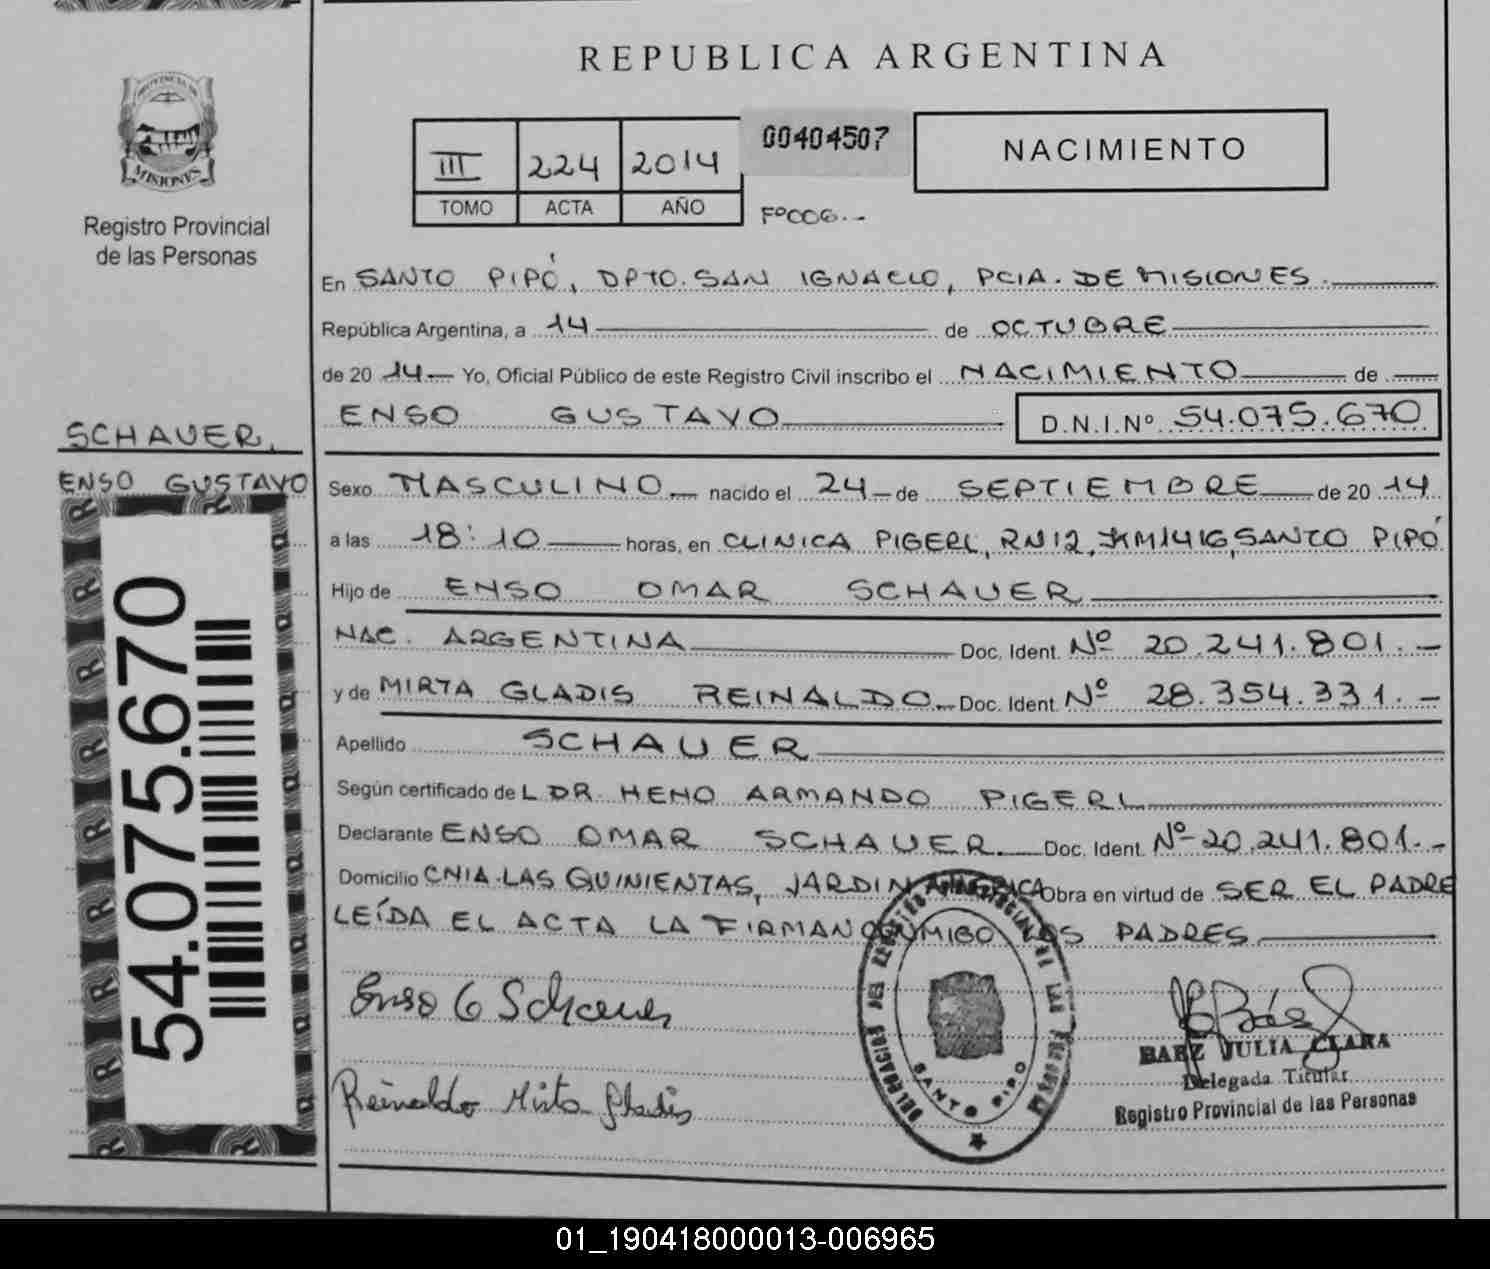 REPUBLICA ARGENTINA
PROVINCIA DE
MISIONES
Registro Provincial
de las Personas
III 224 2014
TOMO ACTA AÑO
00404507
Fº006.-
NACIMIENTO
En SANTO PIPÓ, DPTO. SAN IGNACIO, PCIA. DE MISIONES
República Argentina, a 14 de OCTUBRE
de 20 14 Yo, Oficial Público de este Registro Civil inscribo el NACIMIENTO de
ENSO GUSTAVO D.N.I.Nº 54.075.670
SCHAUER,
ENSO GUSTAVO
54.075.670
Sexo MASCULINO nacido el 24 de SEPTIEMBRE de 20 14
a las 18:10 horas, en CLINICA PIGERL, RN12, KM1416, SANTO PIPÓ
Hijo de ENSO OMAR SCHAUER
NAC. ARGENTINA Doc. Ident. Nº 20.241.801.-
y de MIRTA GLADIS REINALDO Doc. Ident. Nº 28.354.331.-
Apellido SCHAUER
Según certificado de L DR. HENO ARMANDO PIGERL
Declarante ENSO OMAR SCHAUER Doc. Ident. Nº 20.241.801.-
Domicilio CNIA. LAS QUINIENTAS, JARDIN AMERICA Obra en virtud de SER EL PADRE
LEÍDA EL ACTA LA FIRMAN CONMIGO LOS PADRES
Enso O Schauer
Reinaldo Mirta Gladis
SANTO PIPO
BAEZ JULIA CLARA
Delegada Titular
Registro Provincial de las Personas
01_190418000013-006965